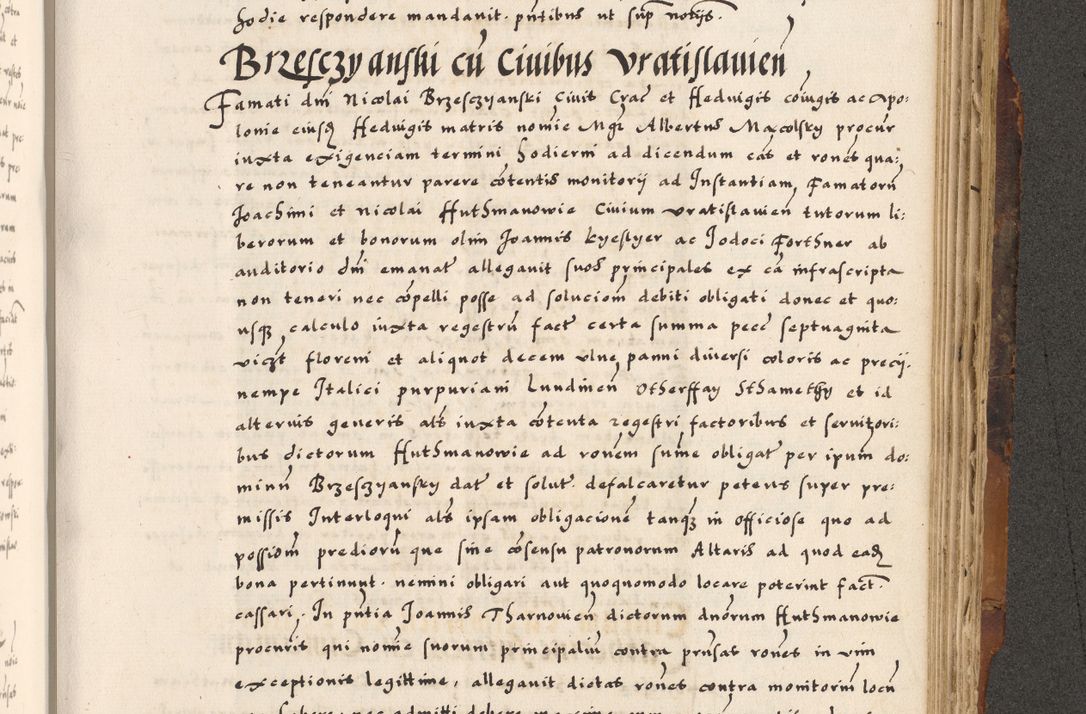 hodie respondere mandavit. pñtibus ut sup̃ notijs.
Brzesczyanski cũ Civibus Vratislauieñ
Famati dñi Nicolai Brzesczyanski Civis Crac̃ et Hedvigis coĩugis ac Apo:
lonie eiusq̃ Hedvigis matris noñie Mg̃r Albertus Maxcolsky procur̃
iuxta exigenciam termini hodierni ad dicendum cãs et roñes qua:
re non teneantur parere cõtentis monitorij ad Instantiam, Famatorũ
Joachimi et Nicolai Huthmanowie Civium Vratislauieñ tutorum li:
berorum et bonorum olim Joannis Kyestyer ac Jodoci Forthner ab
auditorio dñi emanat̃ allegavit suos principales ex cã infrascripta
non teneri nec cõpelli posse ad soluciom̃ debiti obligati donec et quo:
usq̃ calculo iuxta regestrũ fact̃ certa summa pecc̃ septuaginta
vicz̃ floreni et aliquot decem ulne panni diversi coloris ac precij.
nempe Italici purpuriani Lundineñ Otherffay Sthamethy et id
alteruis generis als̃ iuxta cõtenta regestri factoribus et servitori:
bus dictorum Huthmanowie ad roñem sum̃e obligat̃ per ipum̃ do:
minũ Brzesczyansky dat̃ et solut̃. defalcaretur petens super pre:
missis Interloqui als̃ ipsam obligacionẽ tanq̃ in officiose quo ad
possiom̃ prediorũ que sine cõsensu patronorum Altaris ad quod eadẽ
bona pertinnunt. nemini obligari aut quoquomodo locare poterint fact̃.
cassari. In pñtia Joannis Tharnovieñ dictorum dnõrum Huthmanowie
procuris̃ qui noñie suorum principaliũ contra prñsas roñes in vim
exceptionis legittime, allegavit dictas roñes contra monitoriũ locũ
habere nec admitti debere